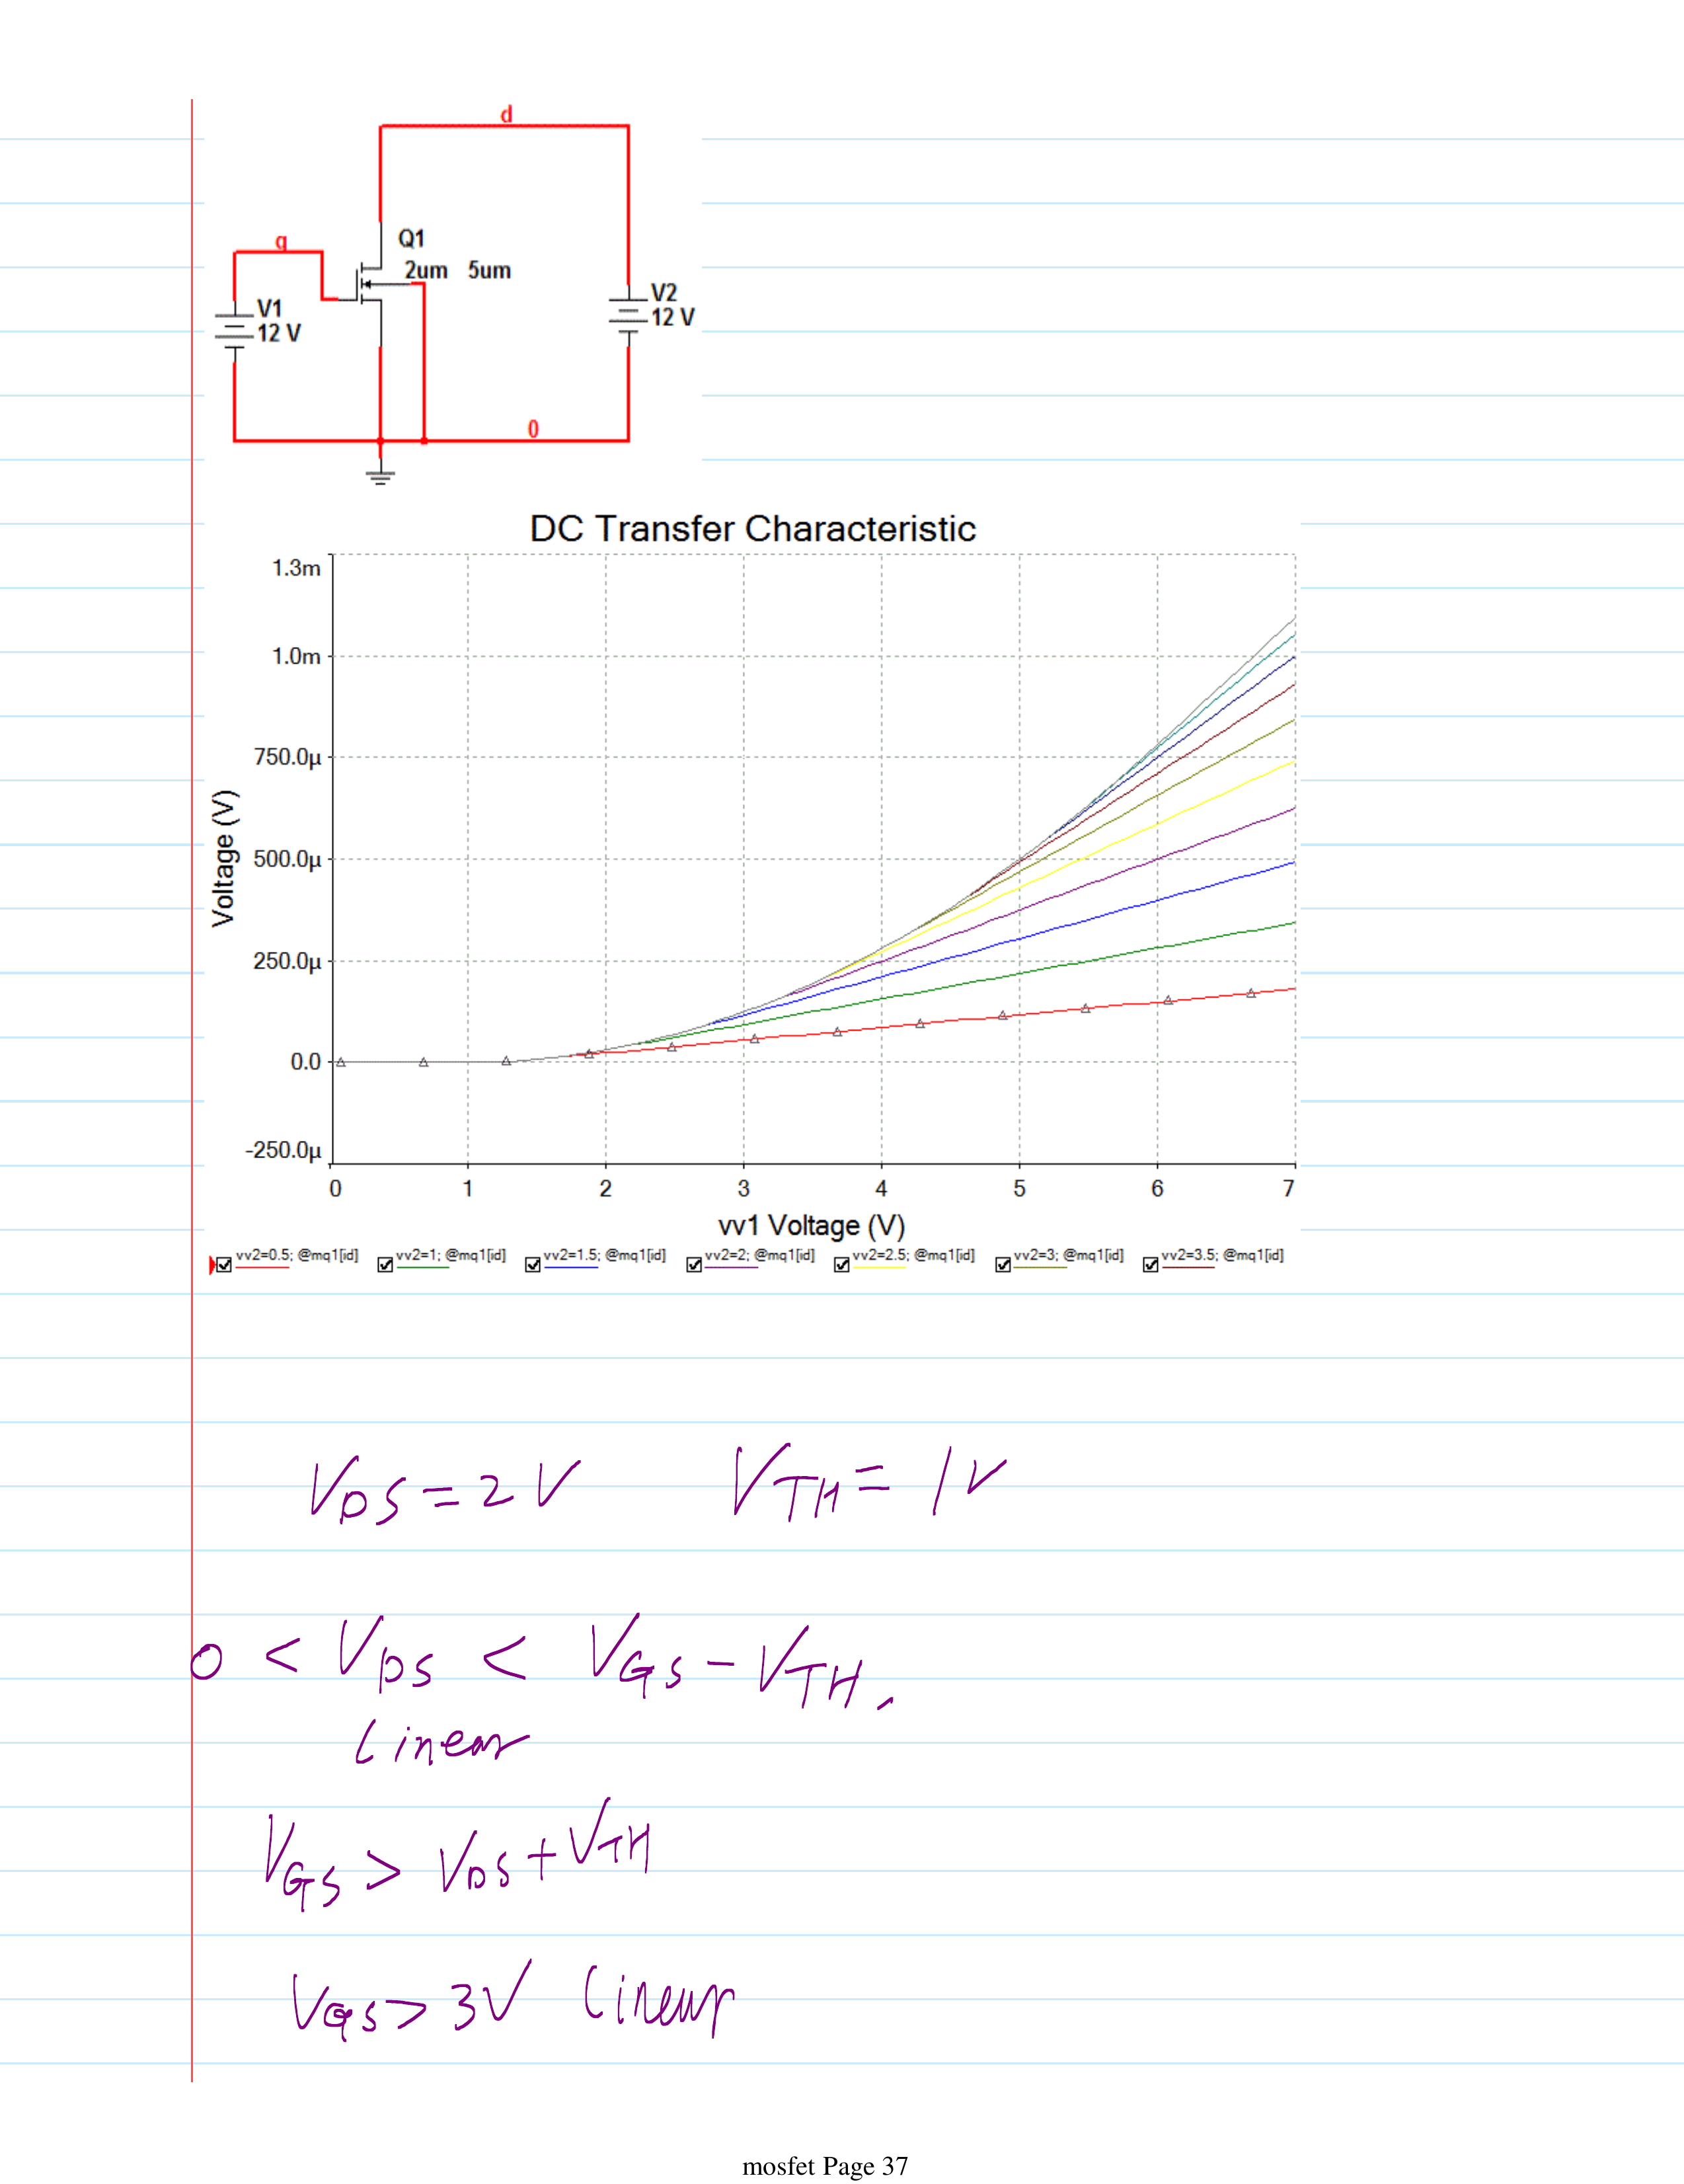 d
g
Q1
2um 5um
V1
12 V
V2
12 V
0
DC Transfer Characteristic
1.3m
1.0m
750.0µ
500.0µ
250.0µ
0.0
-250.0µ
Voltage (V)
0 1 2 3 4 5 6 7
vv1 Voltage (V)
vv2=0.5; @mq1[id] vv2=1; @mq1[id] vv2=1.5; @mq1[id] vv2=2; @mq1[id] vv2=2.5; @mq1[id] vv2=3; @mq1[id] vv2=3.5; @mq1[id]
VDS = 2V VTH = 1V
0 < VDS < VGS - VTH,
linear
VGS > VDS + VTH
VGS > 3V linear
mosfet Page 37